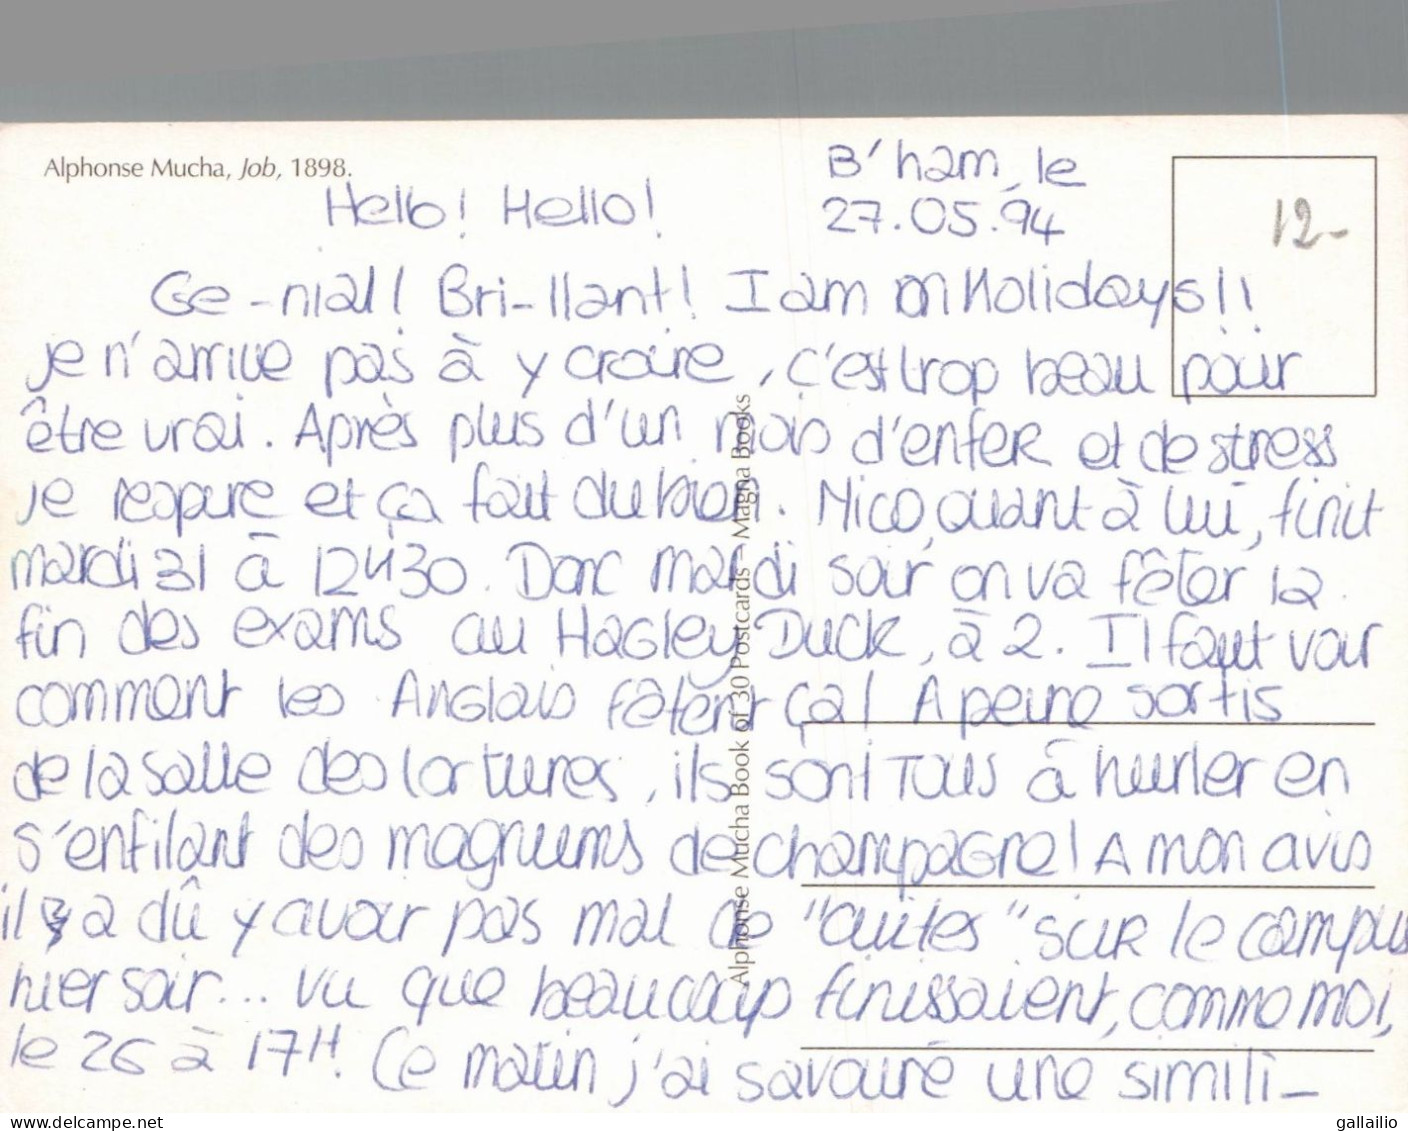 Alphonse Mucha, Job, 1898.
B'ham, le
27.05.94
12-
Hello! Hello!
Ge-nial! Bri-llant! I am on Holidays!!
Je n'arrive pas à y croire, c'est trop beau pour
être vrai. Après plus d'un mois d'enfer et de stress
je respire et ça fait du bien. Nico, quant à lui, finit
mardi 31 à 12H30. Donc mardi soir on va fêter la
fin des exams au Hagley Duck, à 2. Il faut voir
comment les Anglais fêtent ça! A peine sortis
de la salle des tortures, ils sont Tous à hurler en
s'enfilant des magnums de champagne! A mon avis
il y a dû y avoir pas mal de "cuites" sur le campus
hier soir... vu que beaucoup finissaient, comme moi,
le 26 à 17H. Ce matin j'ai savouré une simili-
Alphonse Mucha Book of 30 Postcards – Magna Books
gallailio